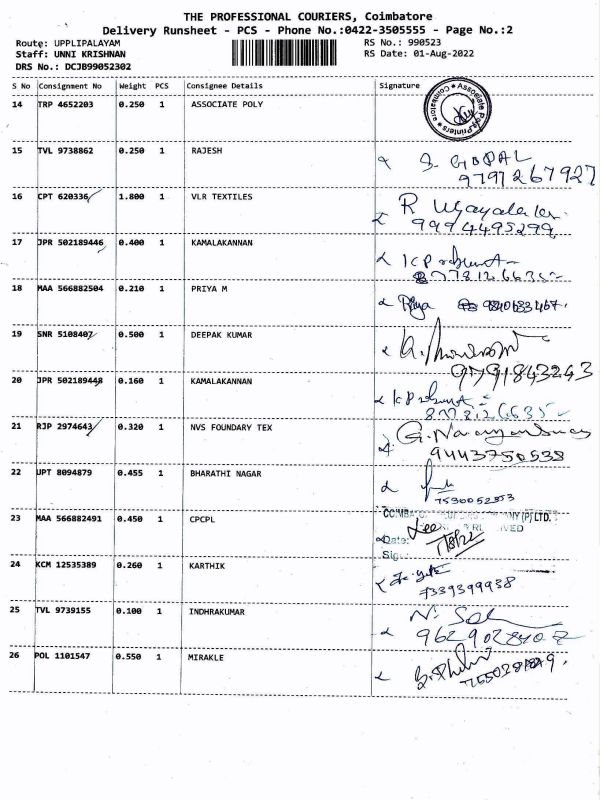 THE PROFESSIONAL COURIERS, Coimbatore
Delivery Runsheet - PCS - Phone No.:0422-3505555 - Page No.:2
Route: UPPLIPALAYAM RS No.: 990523
Staff: UNNI KRISHNAN RS Date: 01-Aug-2022
DRS No.: DCJB99052302
S No Consignment No Weight PCS Consignee Details Signature
14 TRP 4652203 0.250 1 ASSOCIATE POLY Associate Poly Printers Coimbatore
15 TVL 9738862 0.250 1 RAJESH S. GOPAL
9797267927
16 CPT 620336 1.800 1 VLR TEXTILES R
9994495299
17 JPR 502189446 0.400 1 KAMALAKANNAN
18 MAA 566882504 0.210 1 PRIYA M Priya
19 SNR 5108407 0.500 1 DEEPAK KUMAR
9791843243
20 JPR 502189448 0.160 1 KAMALAKANNAN
21 RJP 2974643 0.320 1 NVS FOUNDARY TEX
9443750538
22 UPT 8094879 0.455 1 BHARATHI NAGAR
7530052353
23 MAA 566882491 0.450 1 CPCPL (P) LTD.
Date:
24 KCM 12535389 0.260 1 KARTHIK
7339399938
25 TVL 9739155 0.100 1 INDHRAKUMAR
26 POL 1101547 0.550 1 MIRAKLE